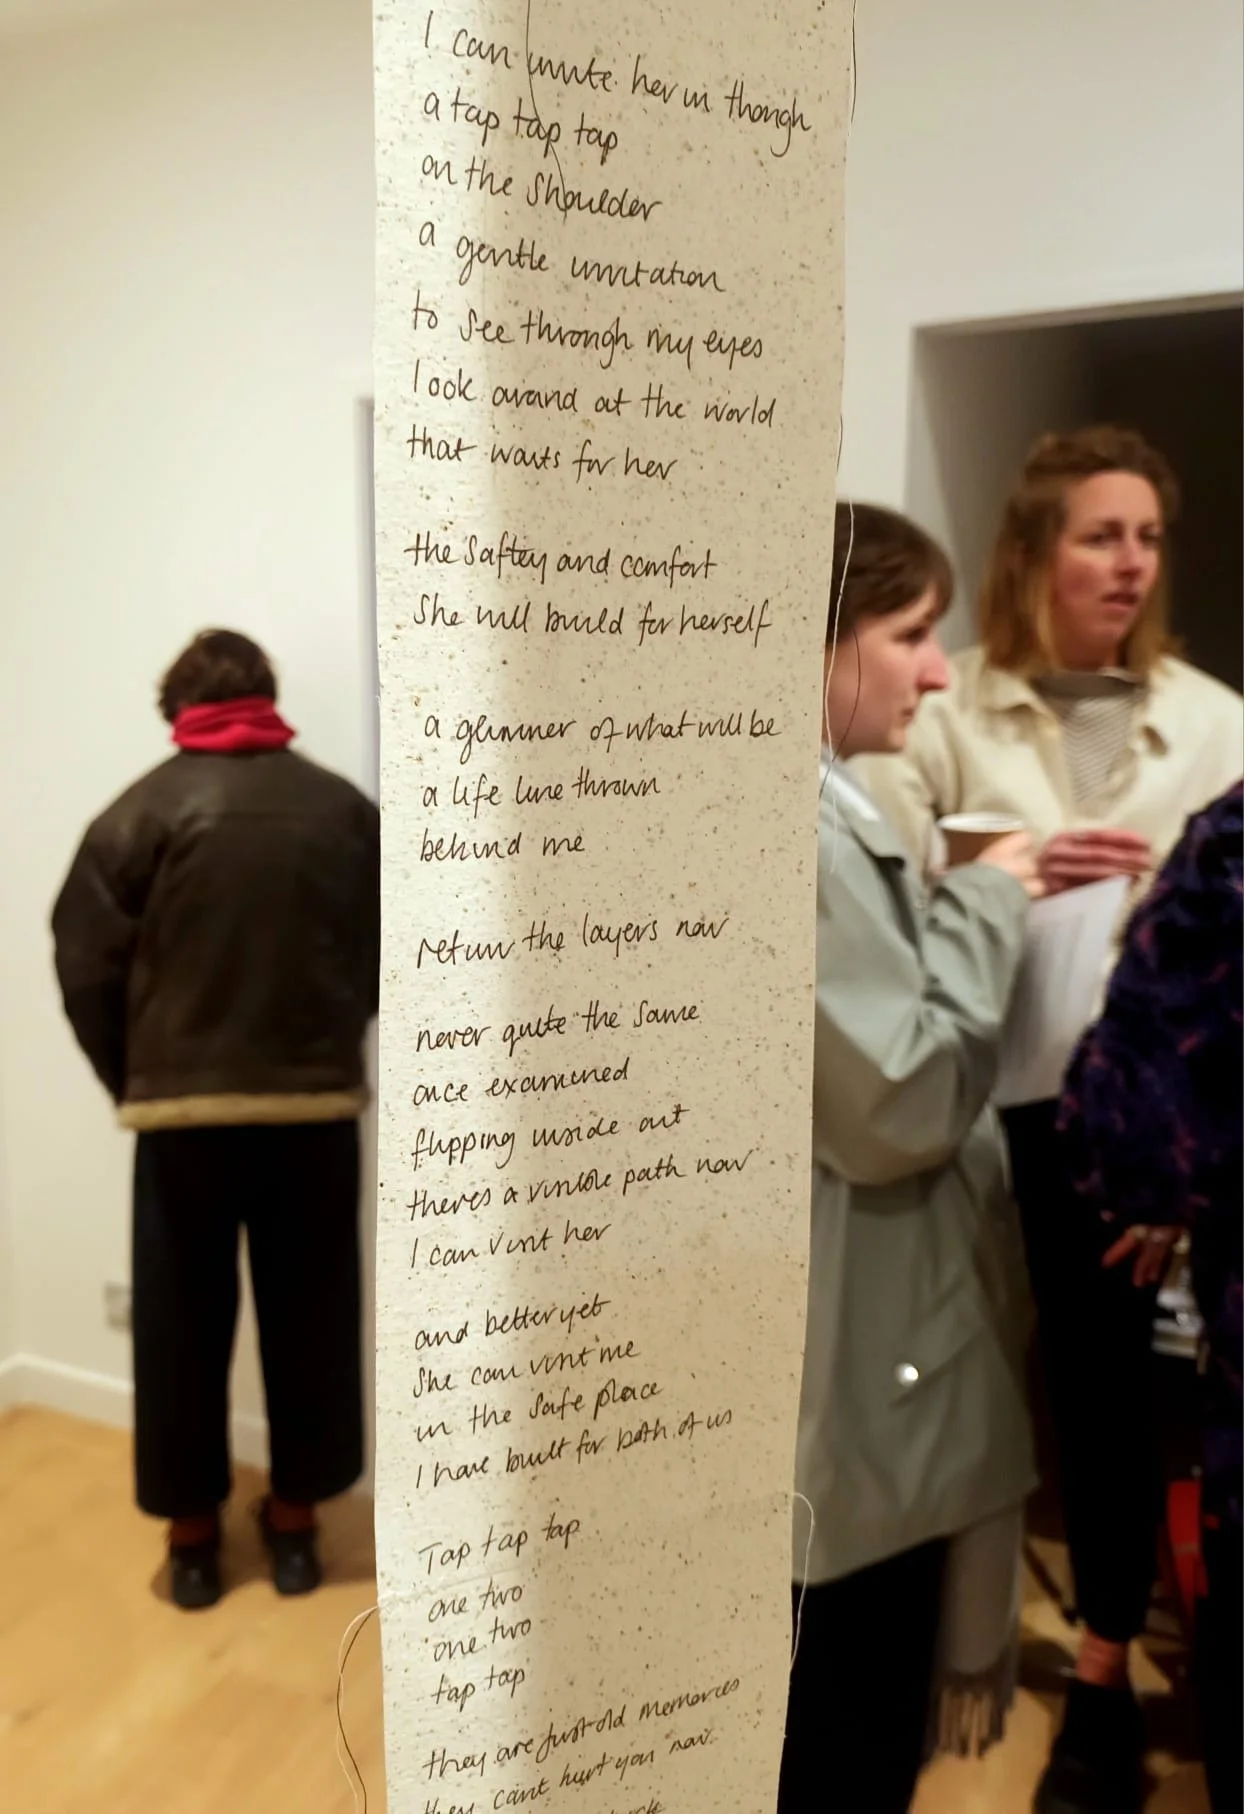 I can invite her in though
a tap tap tap
on the shoulder
a gentle invitation
to see through my eyes
look around at the world
that waits for her
the saftey and comfort
She will build for herself
a glimmer of what will be
a life line thrown
behind me
return the layers now
never quite the same
once examined
flipping inside out
theres a visible path now
I can visit her
and better yet
She can visit me
in the safe place
I have built for both of us
Tap tap tap
one two
one two
tap tap
they are just old memories
they cant hurt you now